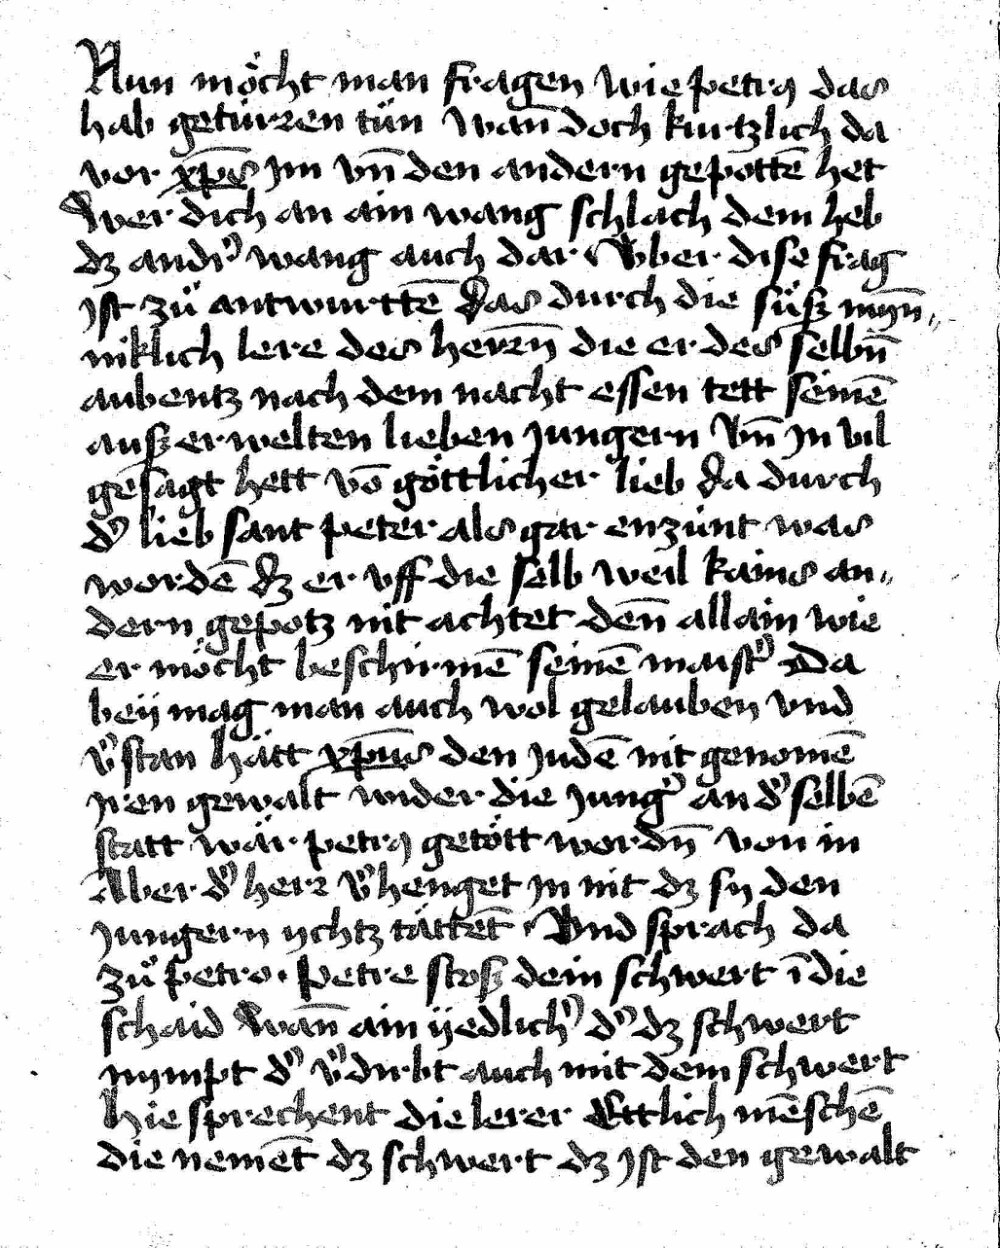 Nun möcht man fragen wie petrꝫ das
hab getürren tůn Wan̄ doch kurtzlich da
vor xp̄s Im vn̄ den andern gepottē het
Wer dich an ain wang schlach dem heb
dz andr͛ wang auch dar Vber dise frag
Ist zů antwurttē Das durch die sůß myn̄„
niklich lere des herꝛn̄ die er des selbn̄
aubentz nach dem nacht essen tett seinē
außerwelten lieben Jungern Vn̄ In vil
gesagt hett vō göttlicher lieb Da durch
d͛ lieb sant peter als gar enzünt was
wordē Dz er vff die selb weil kains an„
dern gepotz nit achtet den̄ allain wie
er möcht beschirmē seinē maist͛ Da
beÿ mag man auch wol gelauben vnd
v͛stan hätt xp̄us den Judē nit genomē
Iren gewalt wider die Jung͛ an d͛ selbē
statt wär petrꝫ getött wordn̄ von in
Aber d͛ herꝛ v͛henget In nit dz sy den
Jungern ychtz tättet̄ · Vnd sprach da
zů petro · Petre stoß dein schwert ī die
schaid Wan̄ ain yedlich͛ d͛ dz schwert
nympt d͛ v͛dirbt auch mit dem schwert
hie sprechent die lerer Ettlich mēschē
die nemēt dz schwert dz Ist den gewalt